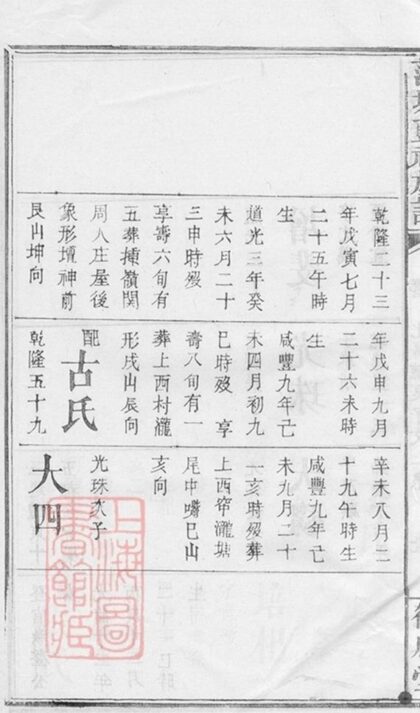 乾隆二十三
年戊寅七月
二十五午時
生
道光三年癸
未六月二十
三申時歿
享壽六旬有
五葬插嶺関
周人庄屋後
象形壇神前
艮山坤向
年戊申九月
二十六未時
生
咸豐九年己
未四月初九
巳時歿 享
壽八旬有一
葬上西村瀧
形戌山辰向
配
古氏
乾隆五十九
辛未八月二
十九午時生
咸豐九年己
未九月二十
一亥時歿葬
上西帘瀧塘
尾中巳山
亥向
光珠次子
大四
上海圖
書館藏